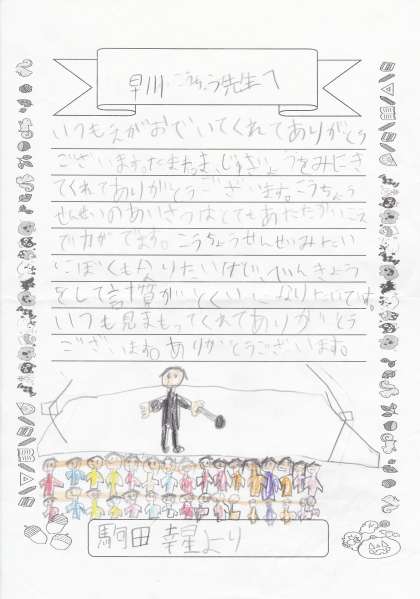 早川こうちょう先生へ
いつもえがおでいてくれてありがとう
ございます。たまにじゅぎょうをみにき
てくれてありがとうございます。こうちょう
せんせいのあいさつはとてもあたたかいこえ
で力がでます。こうちょうせんせいみたい
にぼくもなりたいので、べんきょう
をして計算がとくいになりたいです。
いつも見まもってくれてありがとう
ございます。ありがとうございます。
駒田幸星より